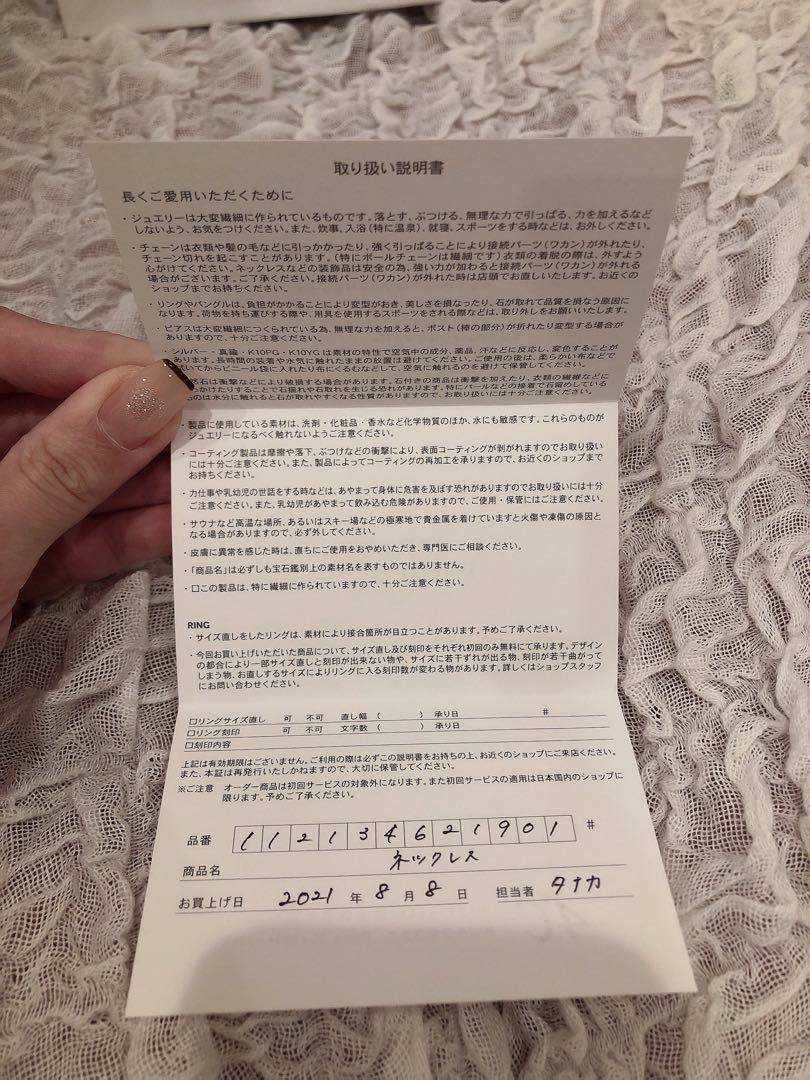 取り扱い説明書
長くご愛用いただくために
・ジュエリーは大変繊細に作られているものです。落とす、ぶつける、無理な力で引っぱる、力を加えるなど
しないよう、お気をつけください。また、炊事、入浴（特に温泉）、就寝、スポーツをする時などは、お外しください。
・チェーンは衣類や髪の毛などに引っかかったり、強く引っぱることにより接続パーツ（ワカン）が外れたり、
チェーン切れを起こすことがあります。（特にボールチェーンは繊細です）衣類の着脱の際は、外すよう
心がけてください。ネックレスなどの装飾品は安全の為、強い力が加わると接続パーツ（ワカン）が外れる
場合がございます。ご了承ください。接続パーツ（ワカン）が外れた時は店頭でお直しいたします。お近くの
ショップまでお持ちください。
・リングやバングルは、負担がかかることにより変形がおき、美しさを損なったり、石が取れて品質を損なう原因に
なります。荷物を持ち運びする際や、用具を使用するスポーツをされる際などは、取り外しをお願いいたします。
・ピアスは大変繊細につくられている為、無理な力を加えると、ポスト（棒の部分）が折れたり変型する場合が
ありますので、十分ご注意ください。
・シルバー・真鍮・K10PG・K10YGは素材の特性で空気中の成分、薬品、汗などに反応し、変色することが
あります。長時間の装着や水気に触れたままの放置は避けてください。ご使用の後は、柔らかい布などで
いてからビニール袋に入れたり布にくるむなどして、空気に触れるのを避けて保管してください。
石は衝撃などにより破損する場合があります。石付きの商品は衝撃を加えたり、衣類の繊維などに
っかけたりすることで石揺れや石取れを生じる恐れがあります。特にパールなどの接着で石留めしている
のは水分に触れると石が取れやすくなる性質がありますので、お取り扱いには十分ご注意ください。
・製品に使用している素材は、洗剤・化粧品・香水など化学物質のほか、水にも敏感です。これらのものが
ジュエリーになるべく触れないようご注意ください。
・コーティング製品は摩擦や落下、ぶつけなどの衝撃により、表面コーティングが剥がれますのでお取り扱い
には十分ご注意ください。また、製品によってコーティングの再加工を承りますので、お近くのショップまで
お持ちください。
・力仕事や乳幼児の世話をする時などは、あやまって身体に危害を及ぼす恐れがありますのでお取り扱いには十分
ご注意ください。また、乳幼児があやまって飲み込む危険がありますので、ご使用・保管にはご注意ください。
・サウナなど高温な場所、あるいはスキー場などの極寒地で貴金属を着けていますと火傷や凍傷の原因と
なる場合がありますので、必ず外してください。
・皮膚に異常を感じた時は、直ちにご使用をおやめいただき、専門医にご相談ください。
・「商品名」は必ずしも宝石鑑別上の素材名を表すものではありません。
・□この製品は、特に繊細に作られていますので、十分ご注意ください。
RING
・サイズ直しをしたリングは、素材により接合箇所が目立つことがあります。予めご了承ください。
・今回お買い上げいただいた商品について、サイズ直し及び刻印をそれぞれ初回のみ無料にて承ります。デザイン
の都合により一部サイズ直しと刻印が出来ない物や、サイズに若干ずれが出る物、刻印が若干曲がって
しまう物、お直しするサイズによりリングに入る刻印数が変わる物があります。詳しくはショップスタッフ
にお問い合わせください。
□リングサイズ直し 可 不可 直し幅（ ） 承り日 #
□リング刻印 可 不可 文字数（ ） 承り日
□刻印内容
上記は有効期限はございません。ご利用の際は必ずこの説明書をお持ちの上、お近くのショップにご来店ください。
また、本証は再発行いたしかねますので、大切に保管してください。
※ご注意 オーダー商品は初回サービスの対象外になります。また初回サービスの適用は日本国内のショップに
限ります。予めご了承ください。
品番 112134621901 #
商品名 ネックレス
お買上げ日 2021 年 8 月 8 日 担当者 タナカ